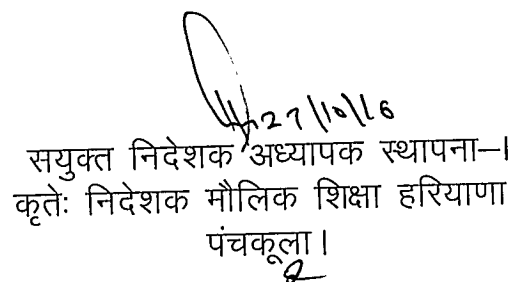 27/10/16
सयुक्त निदेशक अध्यापक स्थापना–।
कृतेः निदेशक मौलिक शिक्षा हरियाणा
पंचकूला।